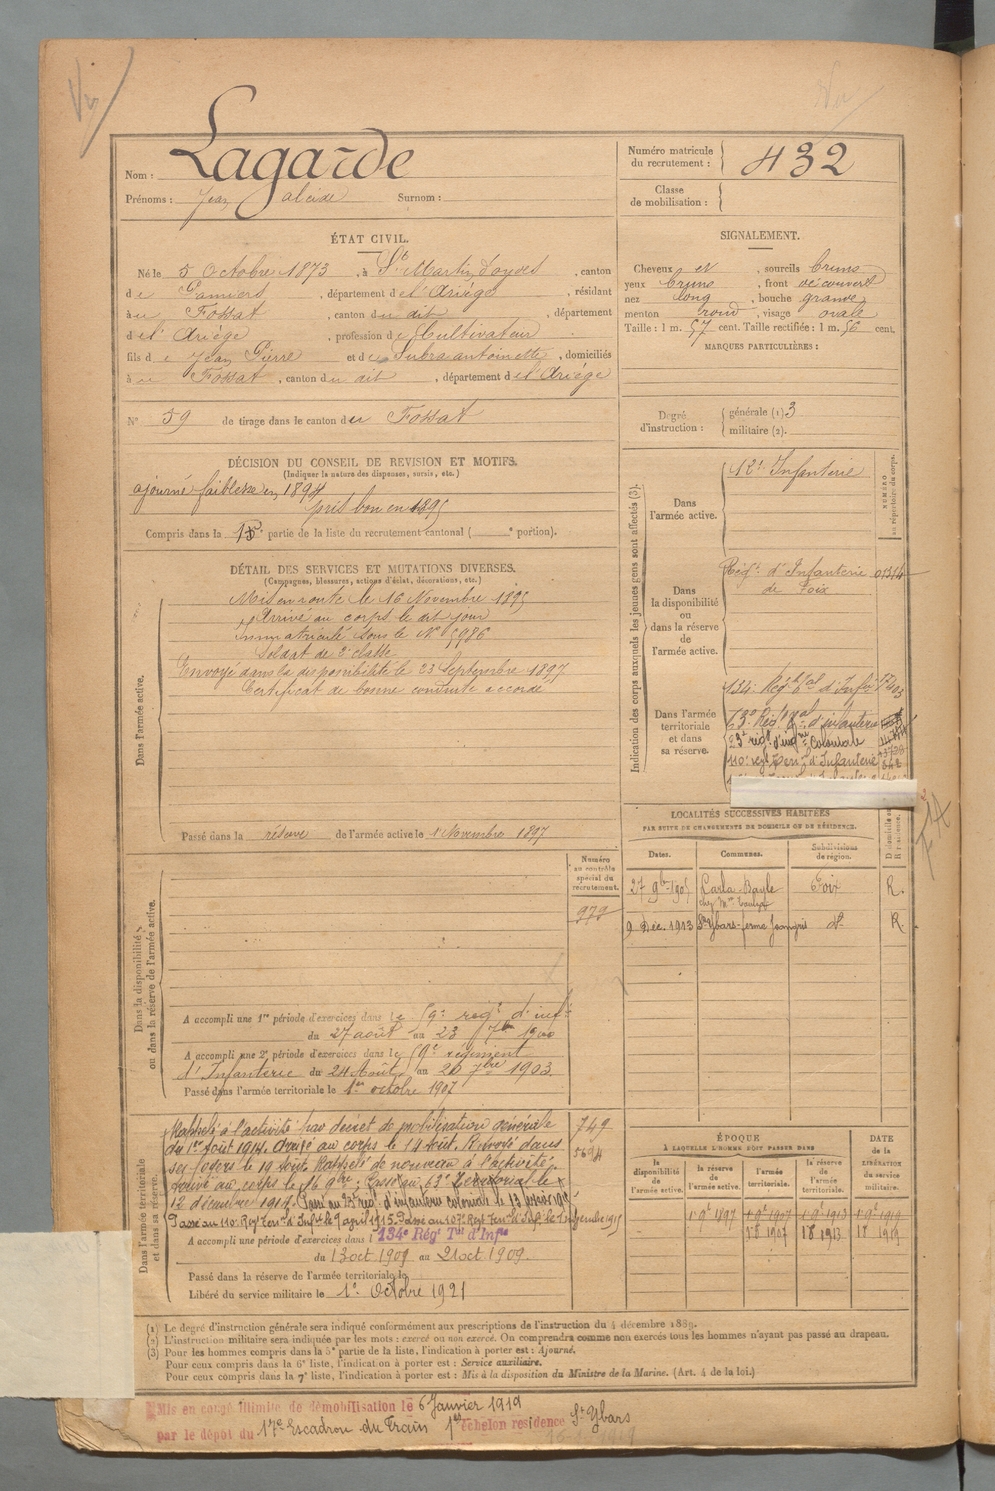 Nom : Lagarde
Prénoms : Jean alcide Surnom :
Numéro matricule du recrutement : 432
Classe de mobilisation :
ÉTAT CIVIL.
Né le 5 Octobre 1873, à St Martin d'oydes, canton
de Pamiers, département de l'Ariège, résidant
au Fossat, canton du dit, département
de l'Ariège, profession de Cultivateur
fils de Jean Pierre et de Subra antoinette, domiciliés
au Fossat, canton du dit, département de l'Ariège
N° 59 de tirage dans le canton du Fossat
SIGNALEMENT.
Cheveux et, sourcils bruns
yeux bruns, front découvert
nez long, bouche grande
menton rond, visage ovale
Taille : 1 m. 57 cent. Taille rectifiée : 1 m. 56 cent.
MARQUES PARTICULIÈRES :
Degré d'instruction : générale (1) 3
militaire (2).
DÉCISION DU CONSEIL DE REVISION ET MOTIFS.
(Indiquer la nature des dispenses, sursis, etc.)
ajourné faiblesse en 1894
pris bon en 1895
Compris dans la 1re partie de la liste du recrutement cantonal ( e portion).
DÉTAIL DES SERVICES ET MUTATIONS DIVERSES.
(Campagnes, blessures, actions d'éclat, décorations, etc.)
Dans l'armée active.
Mis en route le 16 Novembre 1895
Arrivé au corps le dit jour
Immatriculé sous le N° 5986
Soldat de 2e classe
Envoyé dans la disponibilité le 23 Septembre 1897
Certificat de bonne conduite accordé
Passé dans la réserve de l'armée active le 1 Novembre 1897
Indication des corps auxquels les jeunes gens sont affectés (3).
NUMÉRO au répertoire du corps.
Dans l'armée active.
12e Infanterie
Dans la disponibilité ou dans la réserve de l'armée active.
Régt d'Infanterie de Foix 01314
Dans l'armée territoriale et dans sa réserve.
134e Régt tal d'Infie
63e Régt tal d'infanterie
23e régt d'infie Coloniale
110e régt terr. d'Infanterie
LOCALITÉS SUCCESSIVES HABITÉES
PAR SUITE DE CHANGEMENTS DE DOMICILE OU DE RÉSIDENCE.
Dates. Communes. Subdivisions de région. D domicile ou R résidence.
Carla-Bayle Foix R.
9 Déc. 1913 St Ybars-ferme do R.
Dans la disponibilité ou dans la réserve de l'armée active.
Numéro au contrôle spécial du recrutement.
979
A accompli une 1re période d'exercices dans le 59e régt d'inf
du 27 août au 23 7bre 1900
A accompli une 2e période d'exercices dans le 59e régiment
d'Infanterie du 24 Août au 20 7bre 1903
Passé dans l'armée territoriale le 1er octobre 1907
Dans l'armée territoriale et dans sa réserve.
749
5694
Rappelé à l'activité par décret de mobilisation générale
du 1er Août 1914. Arrivé au corps le 14 Août. Renvoyé dans
ses foyers le 19 Août. Rappelé de nouveau à l'activité
Arrivé au corps le 16 9bre; Passé au 63e territorial le
12 décembre 1914. Passé au 23e régt d'infanterie coloniale le 13
Passé au 110e Regt Terr. d'Inf. le 9 avril 1915. Passé au 107e Regt Terr. d'Inf. le
A accompli une période d'exercices dans l 134e Régt Tal d'Infie
du 13 oct 1909 au 21 oct 1909.
Passé dans la réserve de l'armée territoriale le
Libéré du service militaire le 1er Octobre 1921
ÉPOQUE
À LAQUELLE L'HOMME DOIT PASSER DANS
DATE de la LIBÉRATION du service militaire.
la disponibilité de l'armée active. la réserve de l'armée active. l'armée territoriale. la réserve de l'armée territoriale.
1 9e 1897 1 9e 1907 1 9e 1913 1 9e 1919
1 8 1907 1 8 1913 1 8 1919
(1) Le degré d'instruction générale sera indiqué conformément aux prescriptions de l'instruction du 4 décembre 1889.
(2) L'instruction militaire sera indiquée par les mots : exercé ou non exercé. On comprendra comme non exercés tous les hommes n'ayant pas passé au drapeau.
(3) Pour les hommes compris dans la 5e partie de la liste, l'indication à porter est : Ajourné.
Pour ceux compris dans la 6e liste, l'indication à porter est : Service auxiliaire.
Pour ceux compris dans la 7e liste, l'indication à porter est : Mis à la disposition du Ministre de la Marine. (Art. 4 de la loi.)
Mis en congé illimité de démobilisation le 6 Janvier 1919
par le dépôt du 17e Escadron du Train 1er échelon residence St Ybars